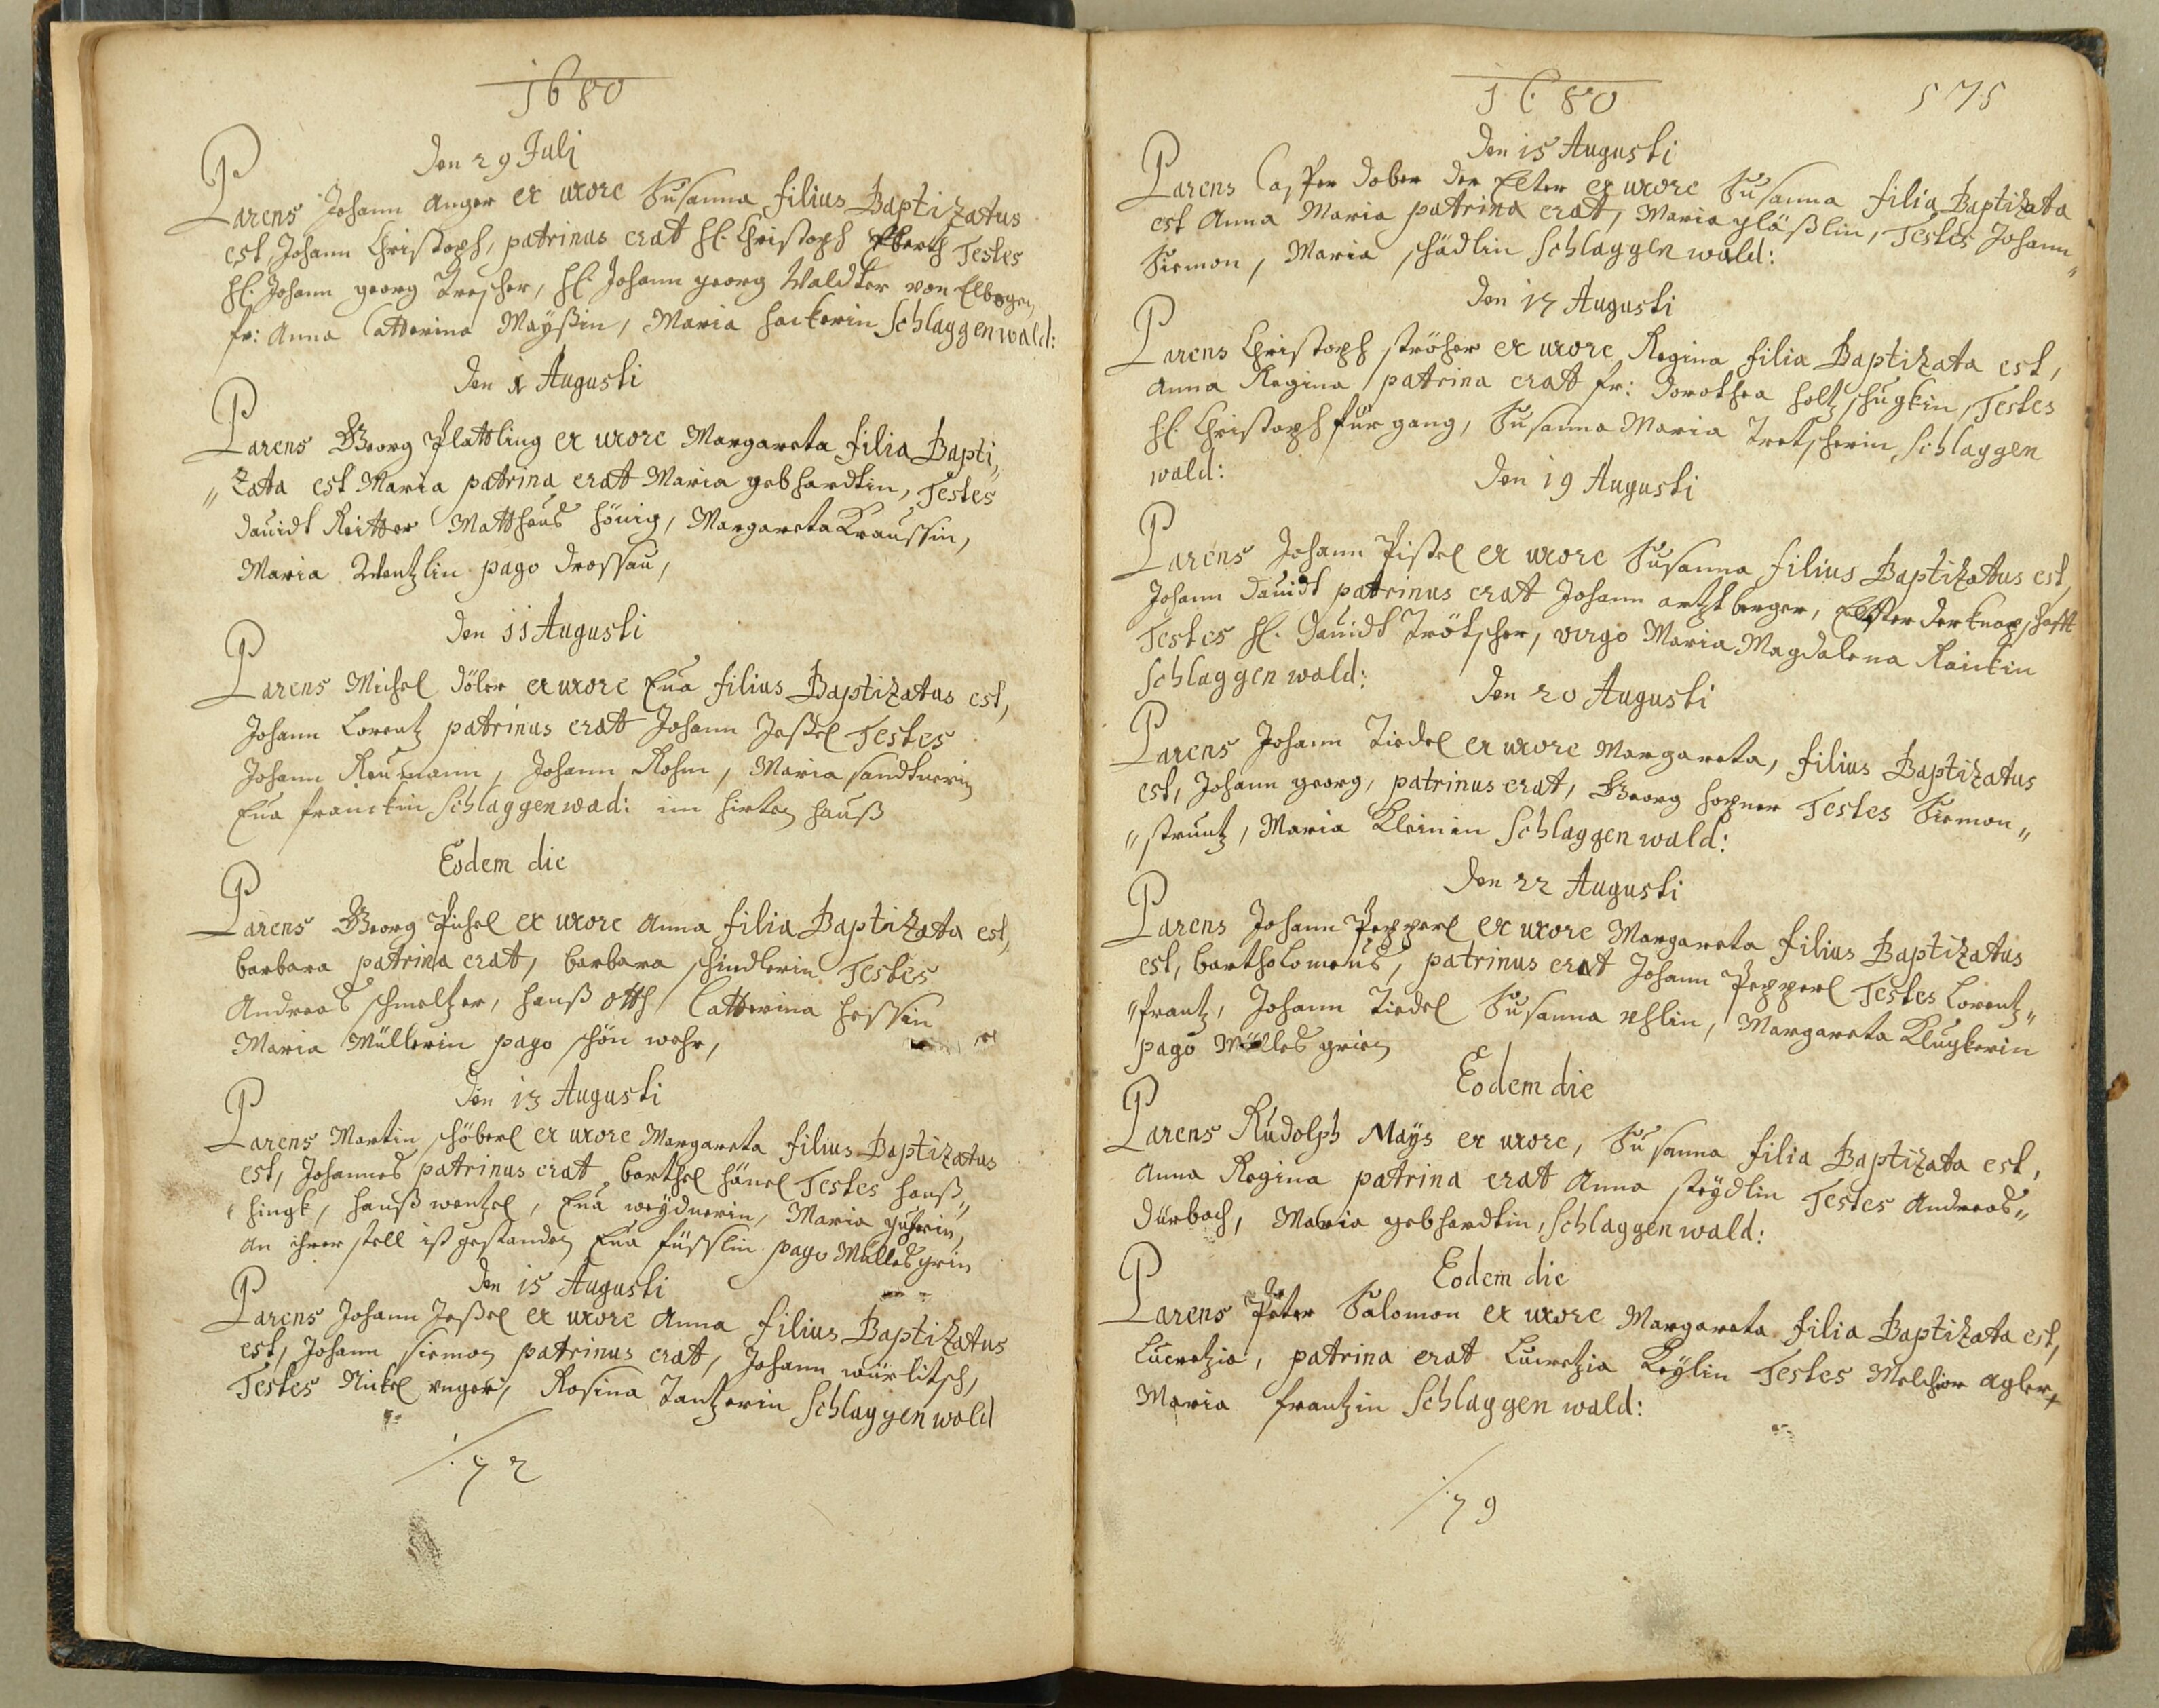 1680
Den 29 Julj
Parens Johann Anger ex uxore Susanna filius Baptizatus
est, Johann Christoph, patrinus erat H. Christoph Eberth Testes
H. Johann georg Trescher, H. Johann georg Waldter von Elbogen,
fr: Anna Catterina Mayßin, Maria hackerin Schlaggenwald:
Den 1 Augusti
Parens Georg Plattling ex uxore Margareta filia Bapti„
„zata est Maria patrina erat Maria gebhardtin, Testes
Dauidt Reitter Matthæus hönig, Margareta Kraussin,
Maria Wentzlin pago Drossau,
Den 11 Augusti
Parens Michel döler ex uxore Eua filius Baptizatus est,
Johann Lorentz patrinus erat Johann Jessel Testes
Johann Reumann, Johann Rohm, Maria sandtnerin
Eua franckin Schlaggenwad: im hirten hauß
Eodem die
Parens Georg Pichel ex uxore Anna filia Baptizata est,
barbara patrina erat, barbara schindlerin Testes
Andreas schmeltzer, hanß otth Catterina hessin
Maria Müllerin pago schön wehr,
Den 13 Augusti
Parens Martin schöberl ex uxore Margareta filius Baptizatus
est, Johannes patrinus erat barthel hänel Testes hanß„
hingk, hanß wentzel, Eua weydnerin, Maria guherin,
an ihrer stell ist gestanden Eua füsslin pago Müllesgrin
Den 15 Augusti
Parens Johann Jessel ex uxore Anna filius Baptizatus
est, Johann siemon patrinus erat, Johann würlitsch,
Testes Nickel unger, Rosina Tantzerin Schlaggenwald
/:72
1680
575
Den 15 Augusti
Parens Casper dober der Elter ex uxore Susanna filia Baptizata
est Anna Maria patrina erat, Maria gläßlin, Testes Johann„
Siemon, Maria schädlin Schlaggenwald:
Den 17 Augusti
Parens Christoph ströher ex uxore Regina filia Baptizata est,
Anna Regina patrina erat fr: Dorothea holtzschugkin, Testes
H. Christoph fürgang, Susanna Maria Tretscherin Schlaggen
wald:
Den 19 Augusti
Parens Johann Pistel ex uxore Susanna filius Baptizatus est,
Johann Dauidt patrinus erat Johann artztberger, Elster der knapschafft
Testes H. Dauidt Trötscher, virgo Maria Magdalena Raickin
Schlaggenwald:
Den 20 Augusti
Parens Johann Tiedel ex uxore Margareta, filius Baptizatus
est, Johann georg, patrinus erat, Georg hopner Testes Siemon„
„struntz, Maria Kleinin Schlaggenwald:
Den 22 Augusti
Parens Johann Pepperl ex uxore Margareta filius Baptizatus
est, bartholomeus, patrinus erat Johann Pepperl Testes Lorentz„
„frantz, Johann Tiedel Susanna uhlin, Margareta Klugkerin
pago Mülles grien
Eodem die
Parens Rudolph Mays ex uxore, Susanna filia Baptizata est,
Anna Regina patrina erat Anna steydlin Testes Andreas„
Dürbach, Maria gebhardtin, Schlaggenwald:
Eodem die
Parens Peter Salomon ex uxore Margareta filia Baptizata est,
Lucretzia, patrina erat Lucretzia Keylin Testes Melchior Agler,
Maria frantzin Schlaggenwald:
/:79